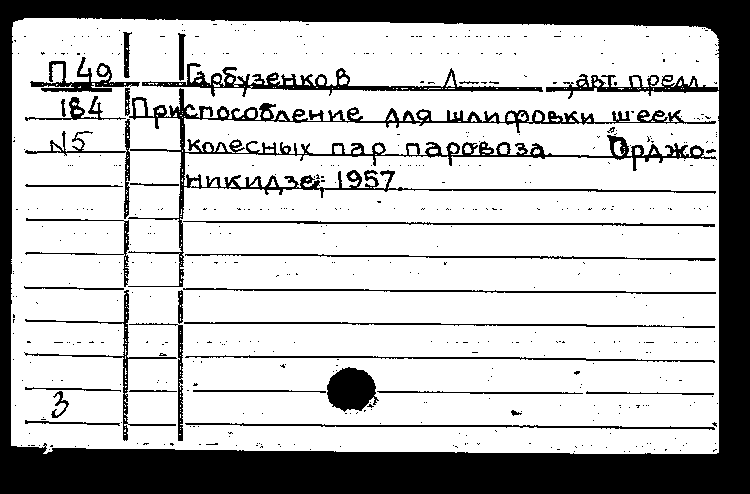 П 49 Гарбузенко, В Л , авт. предл.
184 Приспособление для шлифовки шеек
N5 колесных пар паровоза. Орджо-
никидзе, 1957.
3